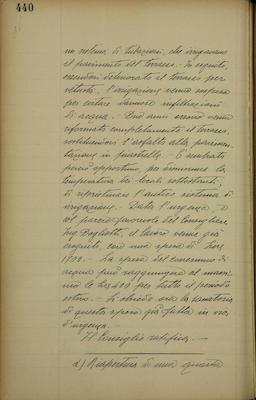 440
un sistema di tubazioni, che irrigavano
il pavimento del terrazzo. In seguito,
essendosi deteriorato il terrazzo per
vetustà, l'irrigazione venne sospesa
per evitare dannose infiltrazioni
di acqua. Due anni or sono venne
riformato completamente il terrazzo,
sostituendosi l'asfalto alla pavimen-
tazione in piastrelle. È sembrato
perciò opportuno per diminuire la
temperatura dei locali sottostanti,
di ripristinare l'antico sistema di
irrigazione. Data l'urgenza, e
col parere favorevole del Consigliere
Ing. Boglietti, il lavoro venne già
eseguito con una spesa di
La spesa del consumo di
acqua può raggiungere al massi-
mo le 400 per tutto il periodo
estivo. Si chiede ora la sanatoria
di questa spesa già fatta in via
d'urgenza.
Il Consiglio ratifica.
d) Riapertura di una